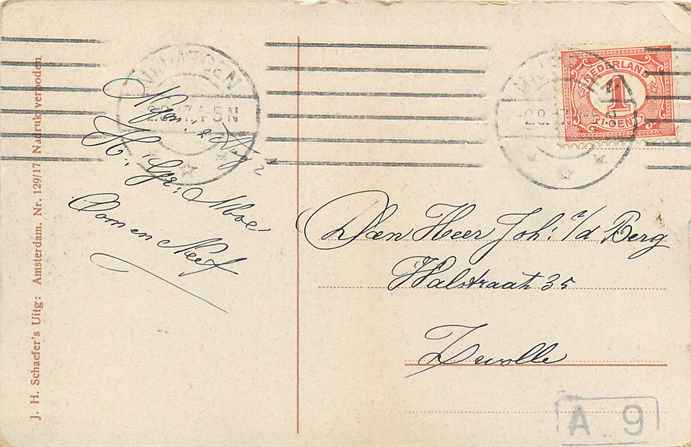 J. H. Schaefer's Uitg: Amsterdam. Nr. 129/17. Nadruk verboden
NIJMEGEN
5 N
NEDERLAND
1
CENT
H. Gr.
Oom en Neef
Den Heer Joh: v/d Berg
Walstraat 35
Zwolle
A 9